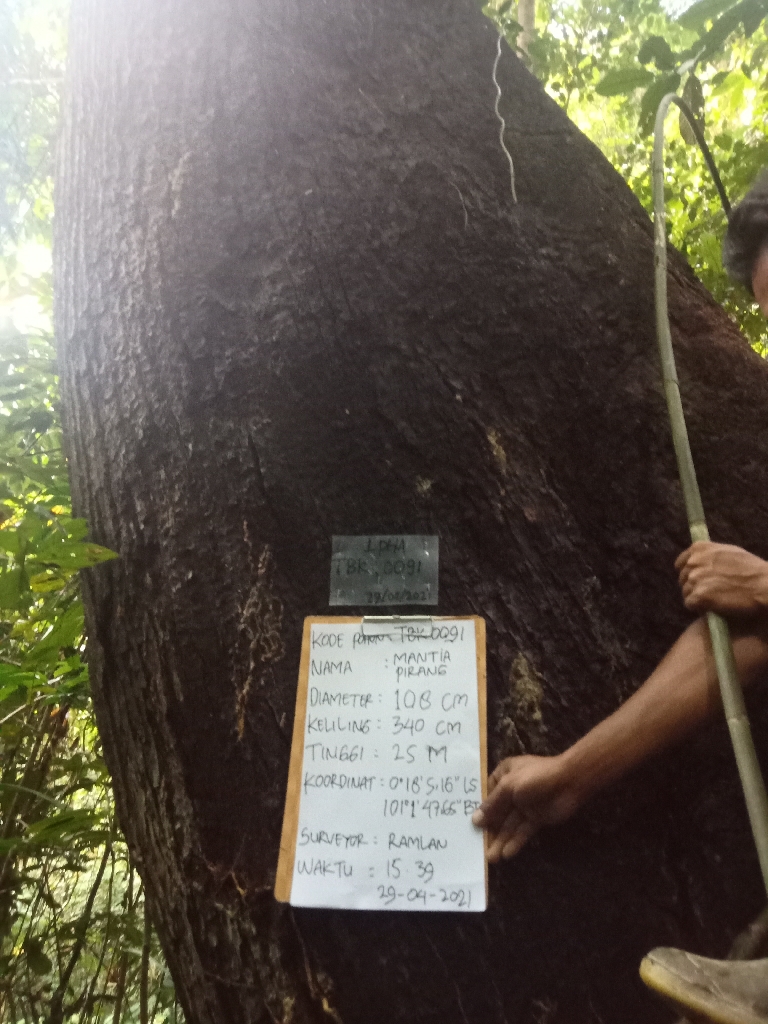 LPHA
TBK 0091
29/04/2021
KODE POHON TBK 0091
NAMA : MANTIA
PIRANG
DIAMETER : 108 CM
KELILING : 340 CM
TINGGI : 25 M
KOORDINAT : 0°18'5,16" LS
101°1'47,65" BT
SURVEYOR : RAMLAN
WAKTU : 15.39
29-04-2021